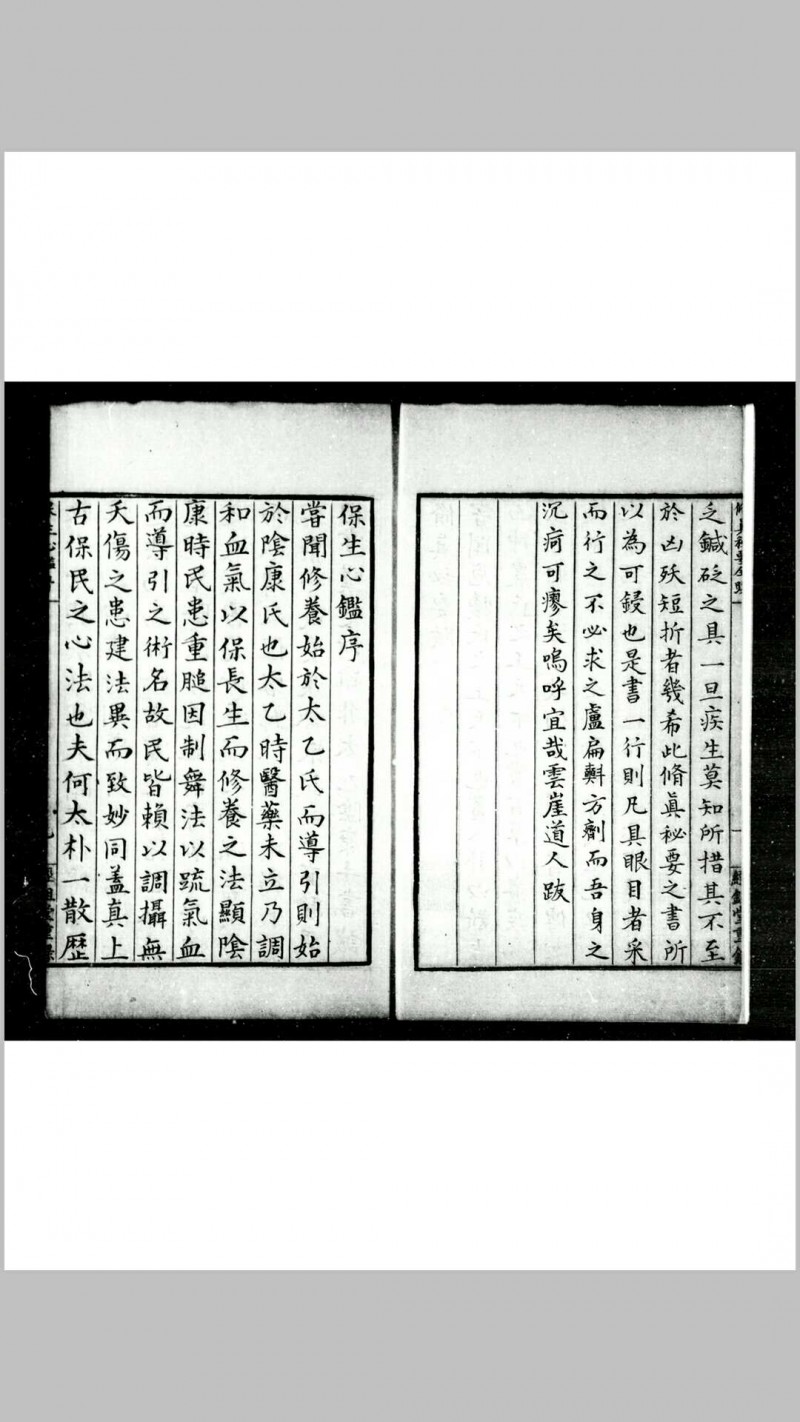 乏鍼砭之具一旦疾生莫知所措其不至
於凶殀短折者幾希此脩眞秘要之書所
以為可鋟也是書一行則凡具眼目者采
而行之不必求之盧扁斅方劑而吾身之
沉疴可瘳矣嗚呼宜哉雲崖道人跋
保生心鑑序
嘗聞修養始於太乙氏而導引則始
於陰康氏也太乙時醫藥未立乃調
和血氣以保長生而修養之法顯陰
康時民患重膇因制舞法以疏氣血
而導引之術名故民皆賴以調攝無
夭傷之患建法異而致妙同蓋真上
古保民之心法也夫何太朴一散歷